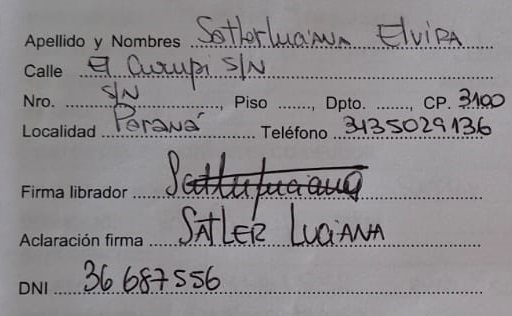 Apellido y Nombres Satler Luciana Elvira
Calle El Curupi S/N
Nro. S/N, Piso ......, Dpto. ......, CP. 3100
Localidad Paraná Teléfono 3435029136
Firma librador Satler Luciana
Aclaración firma SATLER LUCIANA
DNI 36 687556